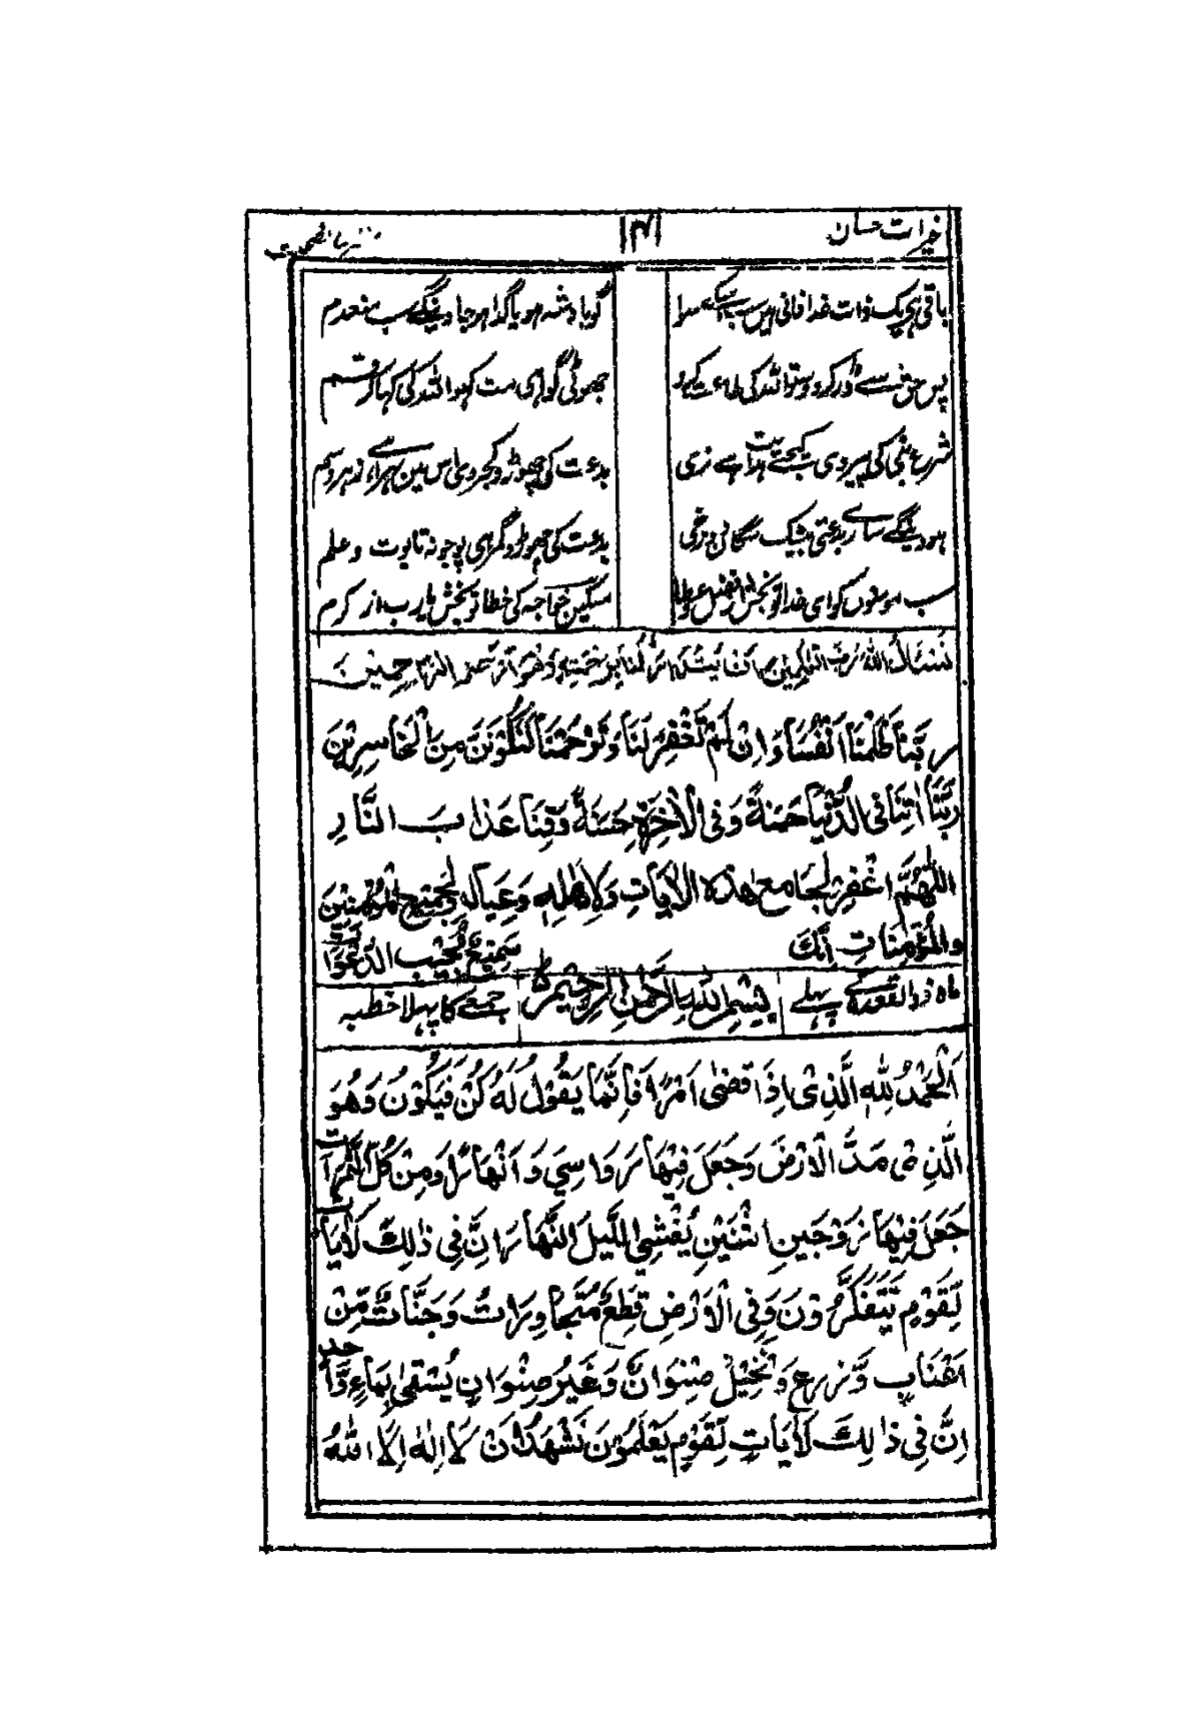 خیرات حسان ۱۴۱
باقی ہے یک ذات خدا فانی ہیں سب اسکے سوا گو بادشہ ہو یا گدا ہو جاوینگے سب منعدم
پس حق سے ڈر کر دوستو اللہ کی طاعت کرو جھوٹی گواہی مت کہو اللہ کی کھا کر قسم
شرع نبی کی پیروی کیجئے ہدایت ہے نری بدعت کی چھوڑو کجروی اس میں سراسر زہر و سم
ہووینگے سارے بدعتی بیشک سگان دوزخی بدعت کی چھوڑو گمرہی پوجو نہ تابوت و علم
سب مومنوں کو ای خدا تو بخش از فضل و عطا مسکین خواجہ کی خطا تو بخش یا رب از کرم
نَسْئَلُ اللهَ رَبَّ الْعٰلَمِيْنَ اَنْ بِرَحْمَتِهٖ وَهُوَ اَرْحَمُ الرَّاحِمِيْنَ
رَبَّنَا ظَلَمْنَا اَنْفُسَنَا وَاِنْ لَمْ تَغْفِرْ لَنَا وَتَرْحَمْنَا لَنَكُوْنَنَّ مِنَ الْخَاسِرِيْنَ
رَبَّنَا اٰتِنَا فِى الدُّنْيَا حَسَنَةً وَفِى الْاٰخِرَةِ حَسَنَةً وَقِنَا عَذَابَ النَّارِ
اَللّٰهُمَّ اغْفِرْ لِجَامِعِ هٰذِهِ الْاٰيَاتِ وَلِاَهْلِهٖ وَعِيَالِهٖ وَلِجَمِيْعِ الْمُؤْمِنِيْنَ
وَالْمُؤْمِنَاتِ اِنَّكَ سَمِيْعٌ مُجِيْبُ الدَّعْوَاتِ
ماہ ذوالقعدہ کے پہلے بِسْمِ اللهِ الرَّحْمٰنِ الرَّحِيْمِ جمعے کا پہلا خطبہ
اَلْحَمْدُ لِلّٰهِ الَّذِىْ اِذَا قَضٰى اَمْرًا فَاِنَّمَا يَقُوْلُ لَهٗ كُنْ فَيَكُوْنُ وَهُوَ
الَّذِىْ مَدَّ الْاَرْضَ وَجَعَلَ فِيْهَا رَوَاسِيَ وَاَنْهَارًا وَمِنْ كُلِّ الثَّمَرَاتِ
جَعَلَ فِيْهَا زَوْجَيْنِ اثْنَيْنِ يُغْشِي اللَّيْلَ النَّهَارَ اِنَّ فِيْ ذٰلِكَ لَاٰيَاتٍ
لِّقَوْمٍ يَّتَفَكَّرُوْنَ وَفِى الْاَرْضِ قِطَعٌ مُّتَجَاوِرَاتٌ وَجَنَّاتٌ مِّنْ
اَعْنَابٍ وَّزَرْعٌ وَّنَخِيْلٌ صِنْوَانٌ وَّغَيْرُ صِنْوَانٍ يُسْقٰى بِمَاءٍ وَّاحِدٍ
اِنَّ فِيْ ذٰلِكَ لَاٰيَاتٍ لِّقَوْمٍ يَعْلَمُوْنَ نَشْهَدُ اَنْ لَا اِلٰهَ اِلَّا اللهُ